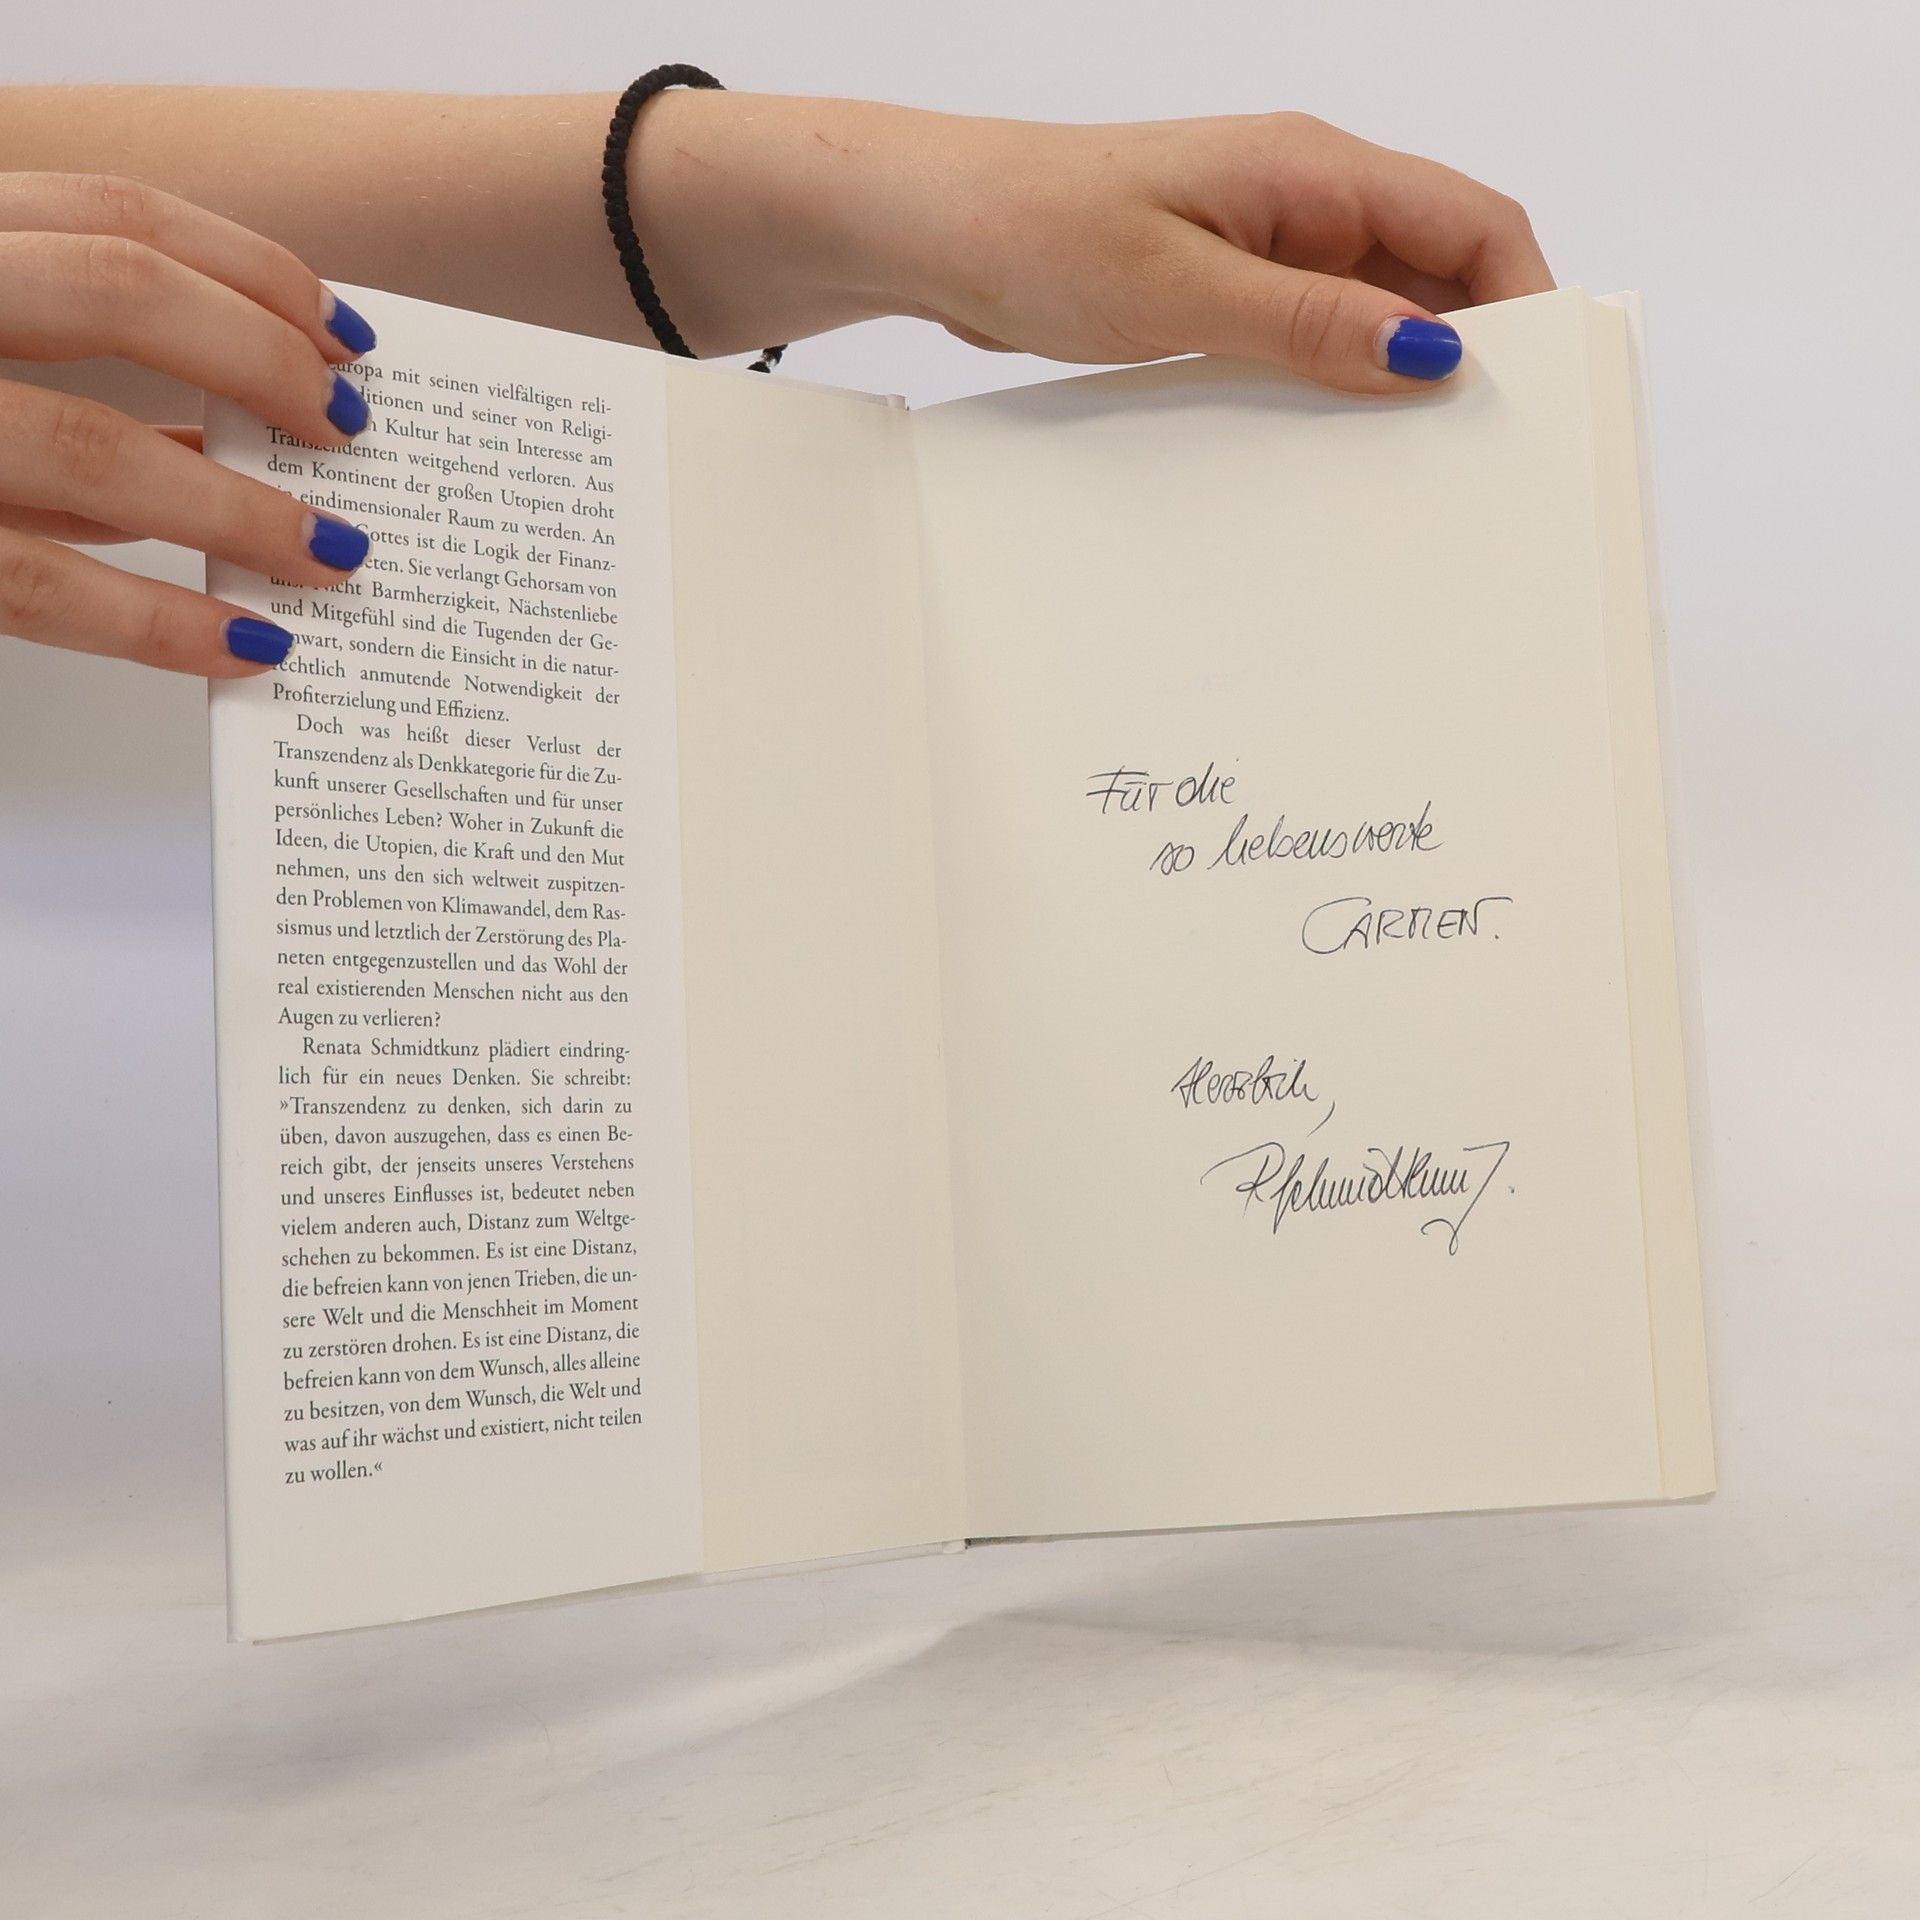 uropa mit seinen vielfältigen reli-
ditionen und seiner von Religi-
n Kultur hat sein Interesse am
Transzendenten weitgehend verloren. Aus
dem Kontinent der großen Utopien droht
eindimensionaler Raum zu werden. An
Gottes ist die Logik der Finanz-
eten. Sie verlangt Gehorsam von
uns. Nicht Barmherzigkeit, Nächstenliebe
und Mitgefühl sind die Tugenden der Ge-
nwart, sondern die Einsicht in die natur-
rechtlich anmutende Notwendigkeit der
Profiterzielung und Effizienz.
Doch was heißt dieser Verlust der
Transzendenz als Denkkategorie für die Zu-
kunft unserer Gesellschaften und für unser
persönliches Leben? Woher in Zukunft die
Ideen, die Utopien, die Kraft und den Mut
nehmen, uns den sich weltweit zuspitzen-
den Problemen von Klimawandel, dem Ras-
sismus und letztlich der Zerstörung des Pla-
neten entgegenzustellen und das Wohl der
real existierenden Menschen nicht aus den
Augen zu verlieren?
Renata Schmidtkunz plädiert eindring-
lich für ein neues Denken. Sie schreibt:
»Transzendenz zu denken, sich darin zu
üben, davon auszugehen, dass es einen Be-
reich gibt, der jenseits unseres Verstehens
und unseres Einflusses ist, bedeutet neben
vielem anderen auch, Distanz zum Weltge-
schehen zu bekommen. Es ist eine Distanz,
die befreien kann von jenen Trieben, die un-
sere Welt und die Menschheit im Moment
zu zerstören drohen. Es ist eine Distanz, die
befreien kann von dem Wunsch, alles alleine
zu besitzen, von dem Wunsch, die Welt und
was auf ihr wächst und existiert, nicht teilen
zu wollen.«
Für die
so liebenswerte
CARMEN.
Herzlich,
RSchmidtkunz.